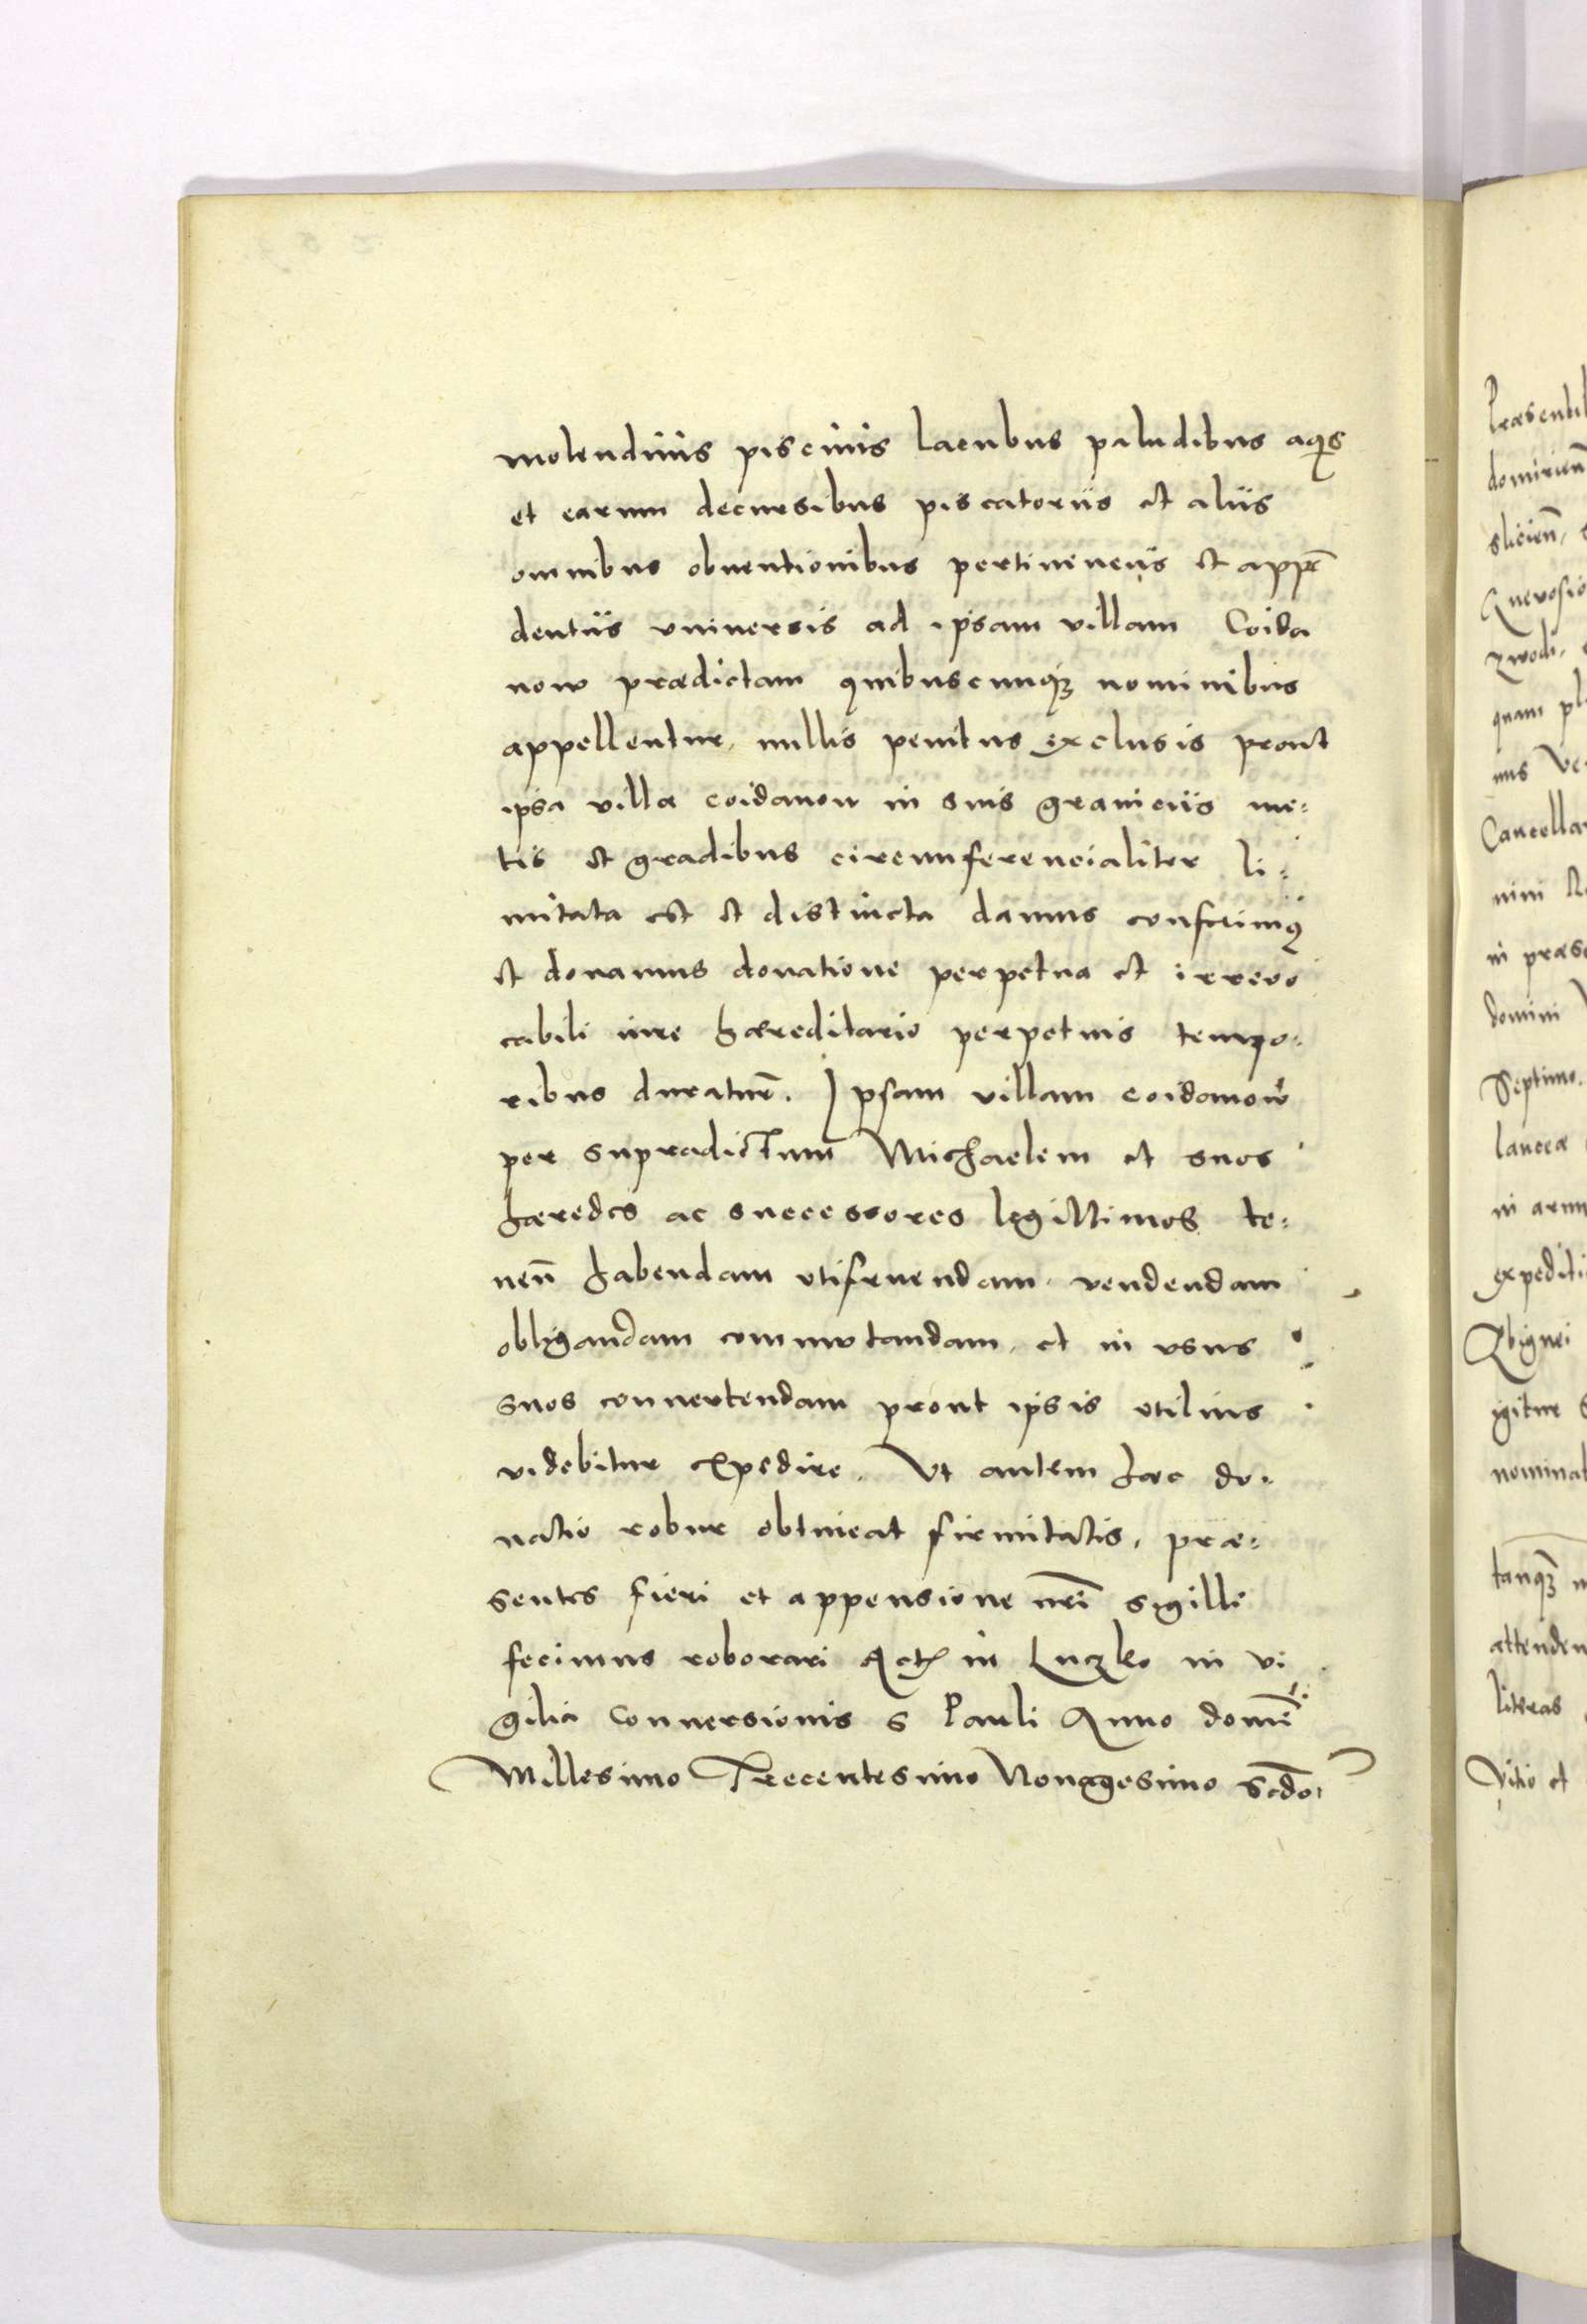 molendinis piscinis lacubus paludibus aq̃s
et earum decursibus piscatoriis et aliis
omnibus obuentionibus pertinenciis et appẽ
dentiis vniuersis ad ipsam villam Coida
now prædictam quibuscunqꝫ nominibus
appellentur, nullis penitus exclusis prout
ipsa villa coidanow in suis graniciis me:
tis et gradibus circumferencialiter li:
mitata est et distincta damus conferimꝰ
et donamus donatione perpetua et irreuo
cabili iure hæreditario perpetuis tempo:
ribus duraturẽ. Ipsam villam coidanow
per supradictum Michaelem et suos
hæredes ac successores legittimos te:
nen̄ habendam vtifruendam, vendendam
obligandam commutandam, et in vsus
suos conuertendam prout ipsis vtilius
videbitur expedire. Vt autem hæc do:
natio robur obtineat firmitatis, præ:
sentes fieri et appensione nr̃i sigilli
fecimus roborari Actꝭ in Luczko in vi
gilia Conuersionis S Pauli Anno domĩ
Millesimo Trecentesimo Nonagesimo Scd̃o.
Præsentib
domirien̄
slicien̄,
Quevosio
zwodi,
quam pl
nus Ve
Cancella
nini
in præs
domini
Septimo.
lancea
in arm
expediti
Zbignei
igitur
nominat
tanqꝫ
attenden
literas
Vitio et